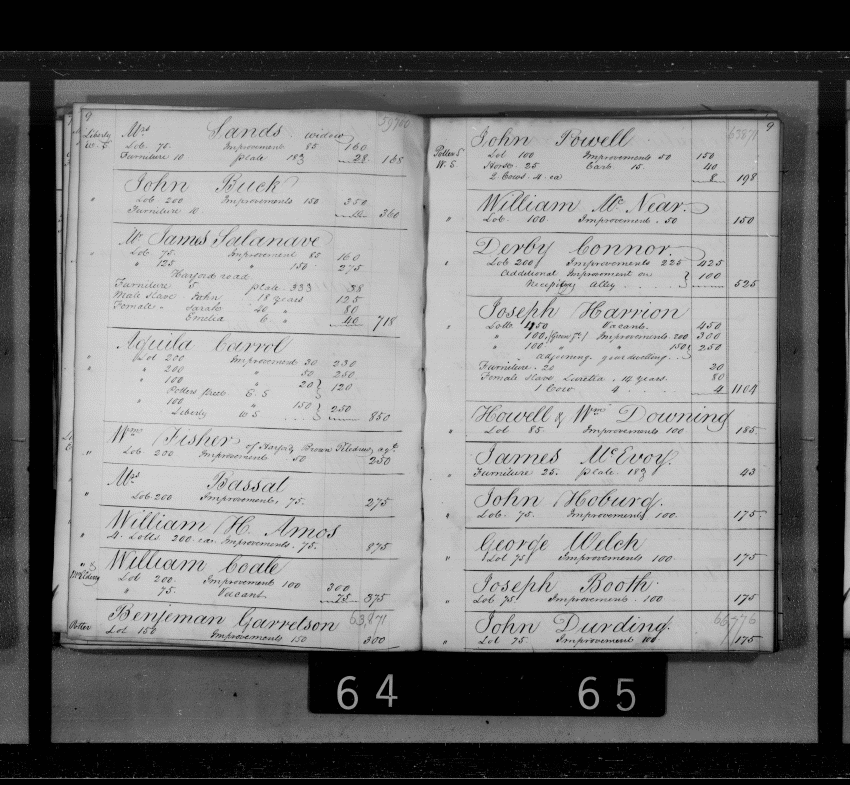 9
59700
Liberty
W. S.
Mrs Sands widow
Lot 75. Improvements 85 160
Furniture 10 plate 18 28 188
John Buck
" Lot 200 Improvements 150 350
Furniture 10 360
W. James Salanave
" Lot 75. Improvement 85 160
" 125 " 150 275
Harford road
Furniture 5 plate 333 38
Male Slave John 18 years 125
Female " Sarah 40 " 80
Emelia 6 " 40 718
Aquila Carrol
" Lot 200 Improvements 30 230
" " 200 " 50 250
" 100 " 20 } 120
Potters street E. S
" 100 " 150 } 250
Liberty W S 850
Wm Fisher of Harford
" Lot 200 Improvements 50 250
Mrs Bassat
" Lot 200 Improvements, 75. 275
William H. Amos
" 4. Lotts 200 ea. Improvements. 75. 875
William Coale
" Lot 200. Improvements 100 300
" 75. Vacant. 75 375
Benjeman Garretson 63,871
Potter Lot 150 Improvements 150 300
63871
9
John Powell
Potter S
W. S.
Lot 100 Improvements 50 150
Horse 25 Cart 15. 40
2 Cows. 4. ea 8 198
William Mc Near.
" Lot. 100. Improvement. 50 150
Derby Connor.
" Lot 200 Improvements 225 425
Additional Improvment on } 100
Alley 525
Joseph Harrion
" Lotts 450 Vacant. 450
" 100 (Green St.) Improvements. 200 300
" 100 " 150 } 250
adjoining your dwelling
Furniture. 20 20
Female Slave Luretia. 14 years. 80
1 Cow 4 4 1104
Howell & Wm Downing
" Lot 85 Improvements 100 185
James McEvoy.
Furniture 25. plate. 18 43
John Hoburg.
" Lot. 75. Improvements 100. 175
George Welch
" Lot 75 Improvements 100. 175
Joseph Booth
" Lot 75 Improvement. 100 175
John Durding. 66776
" Lot 75. Improvement 100. 175
64 65